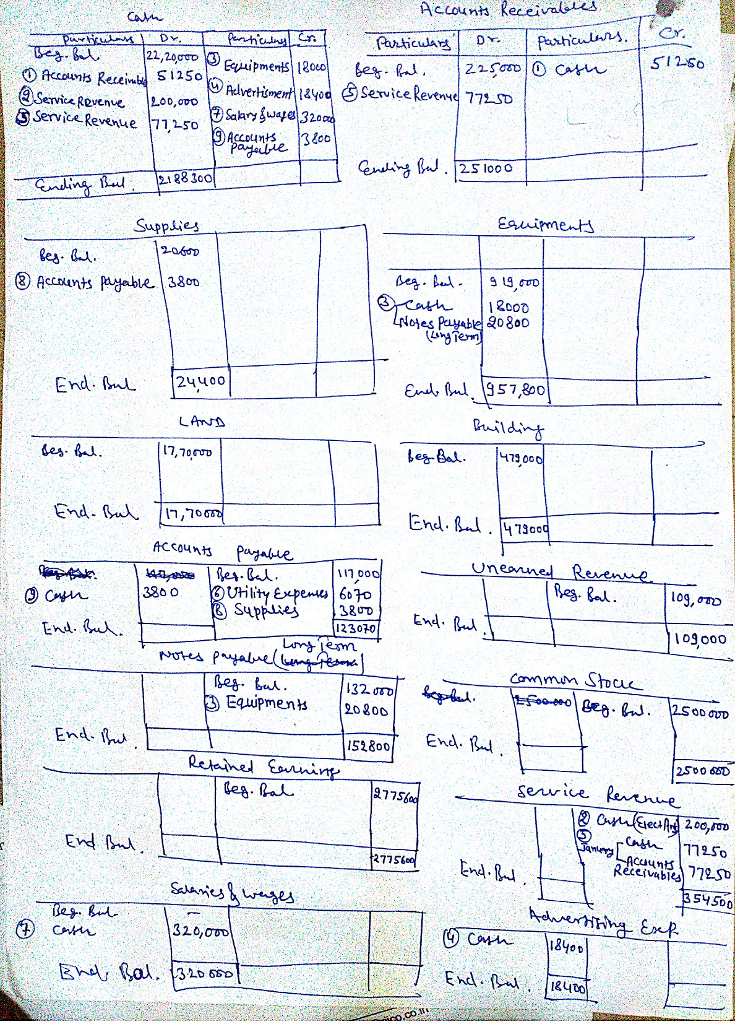 Cash
Particulars Dr. Particulars Cr.
Beg. Bal. 22,20,000 ③ Equipments 18000
① Accounts Receivable 51250 ④ Advertisment 18400
② Service Revenue 200,000 ⑦ Salary & wages 32000
⑤ Service Revenue 77,250 ⑨ Accounts Payable 3800
Ending Bal. 2188300
Accounts Receivables
Particulars Dr. Particulars. Cr.
Beg. Bal. 225,000 ① Cash 51250
⑤ Service Revenue 77250
Ending Bal. 251000
Supplies
Beg. Bal. 20600
⑧ Accounts payable 3800
End. Bal 24,400
Equipments
Beg. Bal. 919,000
③ Cash 18000
Notes Payable 20800
(Long Term)
End. Bal. 957,800
LAND
Beg. Bal. 17,70,000
End. Bal 17,70000
Building
Beg. Bal. 479,000
End. Bal. 479000
Accounts payable
Beg. Bal. 117,000
⑨ Cash 3800 ⑥ Utility Expenses 6070
⑧ Supplies 3800
End. Bal. 123070
Unearned Revenue
Beg. Bal. 109,000
End. Bal. 109,000
Long Term
Notes payable (Long Term)
Beg. Bal. 132000
③ Equipments 20800
End. Bal 152800
Common Stock
Beg. Bal. 2500000 Beg. Bal. 2500000
End. Bal. 2500000
Retained Earning
Beg. Bal 2775600
End Bal. 2775600
Service Revenue
② Cash 200,000
⑤ January Cash 77250
Accounts Receivables 77250
End. Bal. 354500
Salaries & wages
Beg. Bal —
⑦ Cash 320,000
End Bal. 320000
Advertising Exp.
④ Cash 18400
End. Bal. 18400